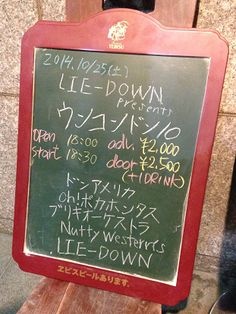 YEBISU
2014.10/25(土)
LIE-DOWN
presents
ウンコンドン10
OPEN 18:00 adv. ¥2,000
start 18:30 door ¥2,500
(+1DRINK)
ドンアメリカ
oh!ポカホンタス
ブリキオーケストラ
Nutty Westerns
LIE-DOWN
ヱビスビールあります。